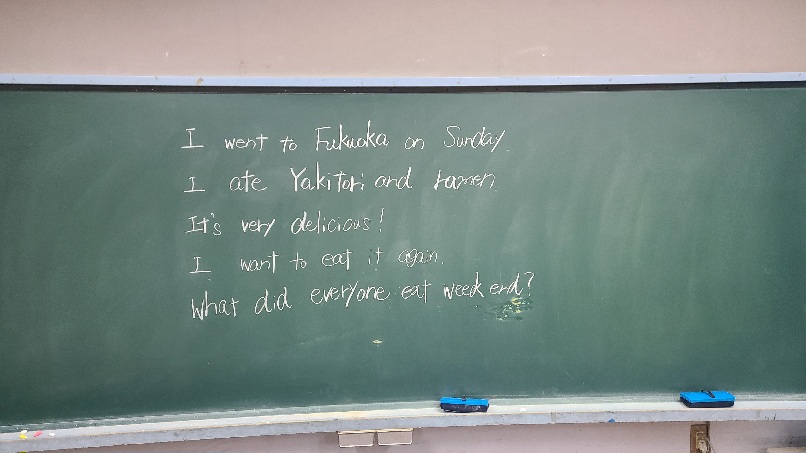 I went to Fukuoka on Sunday.
I ate Yakitori and ramen.
It's very delicious!
I want to eat it again.
What did everyone eat week end?